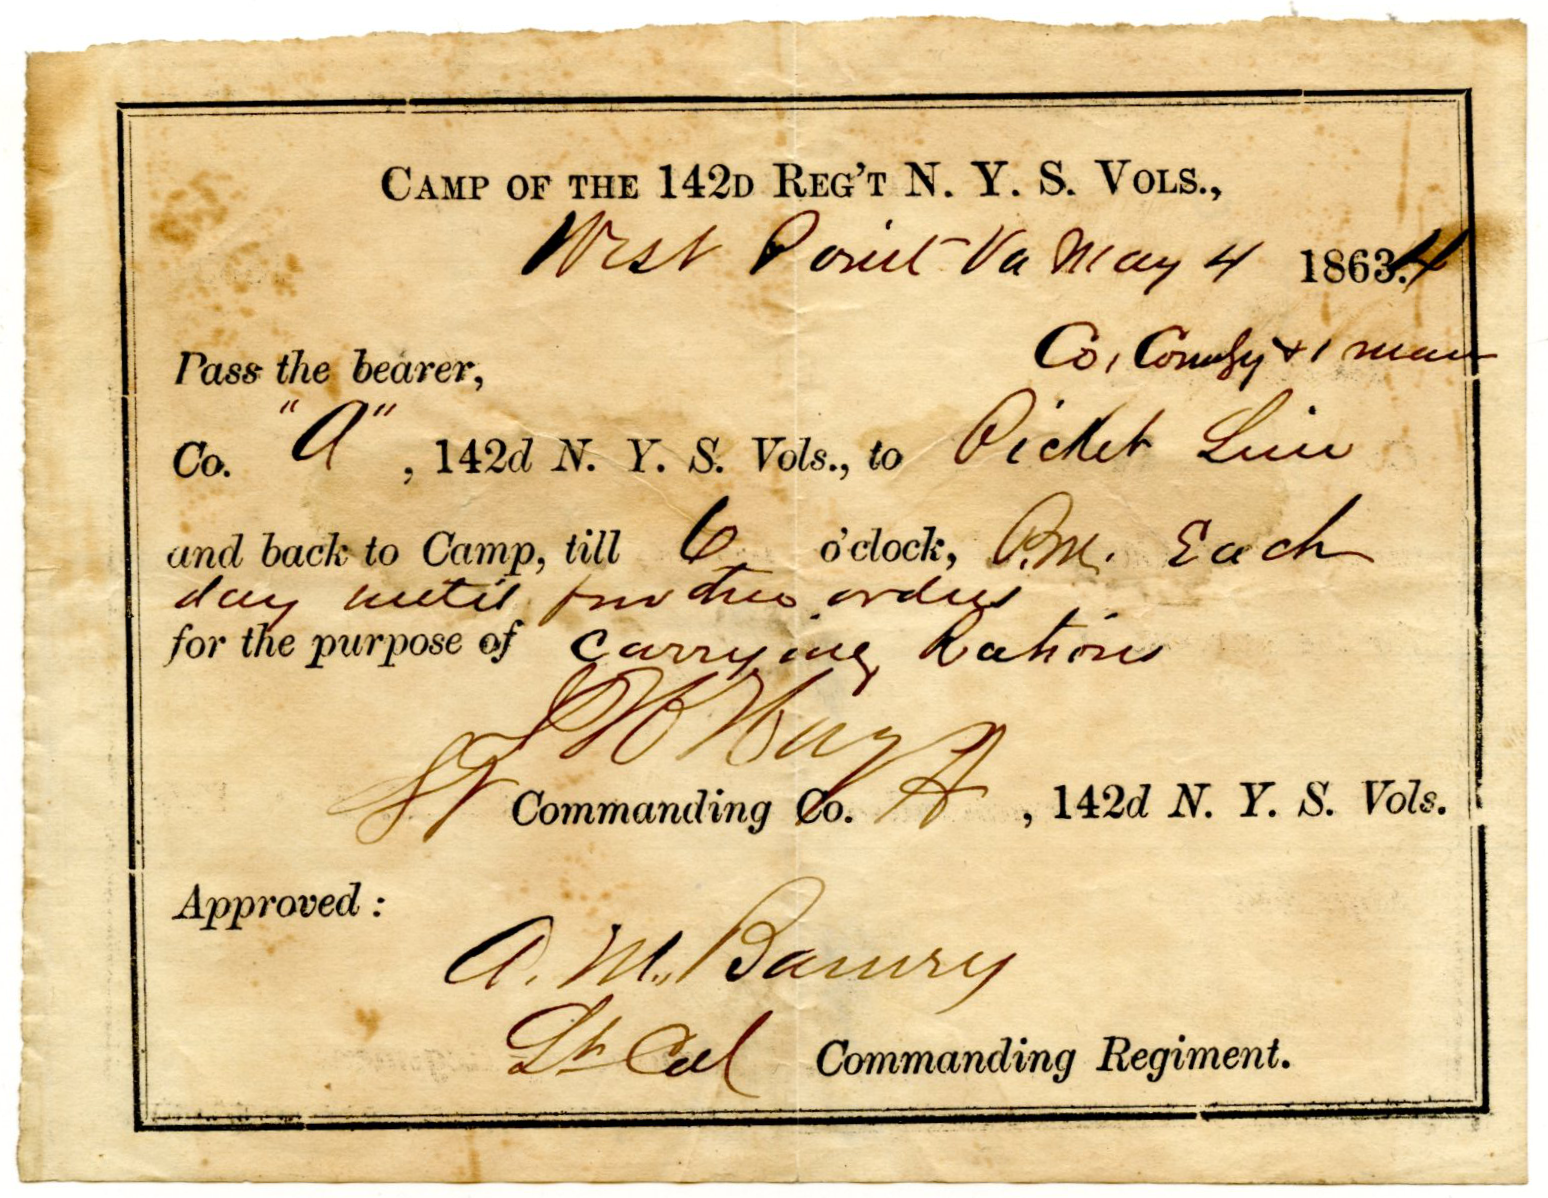 CAMP OF THE 142D REG'T N. Y. S. VOLS.,
West Point Va May 4 1863.4
Pass the bearer, Co, Comsy + 1 man
Co. "A", 142d N. Y. S. Vols., to Picket Line
and back to Camp, till 6 o'clock, P.M. Each
day until further orders
for the purpose of carrying Rations
Lt Commanding Co. A, 142d N. Y. S. Vols.
Approved:
A. M. Barney
Lt Col Commanding Regiment.